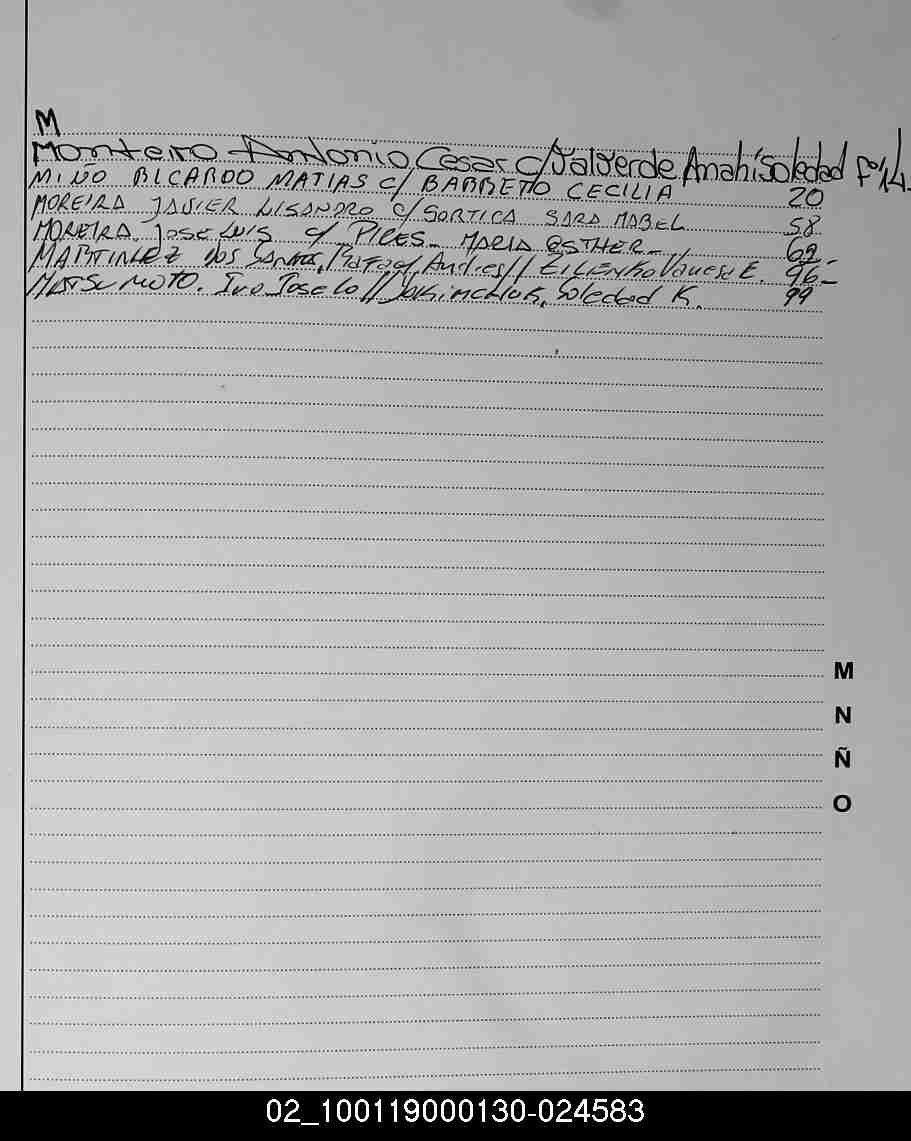 M
Monteiro Antonio Cesar c/ Valverde Anahí Soledad Fº 14.
MIÑO RICARDO MATIAS c/ BARRETO CECILIA 20
MOREIRA JAVIER LISANDRO c/ SORTICA SARA MABEL 58
MOREIRA. JOSE LUIS c/ PIRES - MARIA ESTHER - 62 -
MARTINEZ DOS Santos, Rafael Andres // EILENKO Vanesa E. 96 -
MATSUMOTO. Ivo Joselo // Jakimchuk, Soledad K. 99
M
N
Ñ
O
02_100119000130-024583